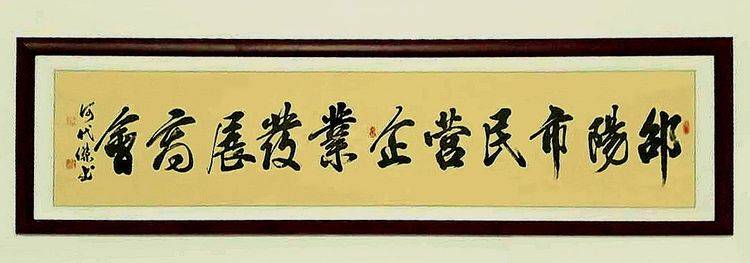 邵陽市民營企業發展商會
何代傑书